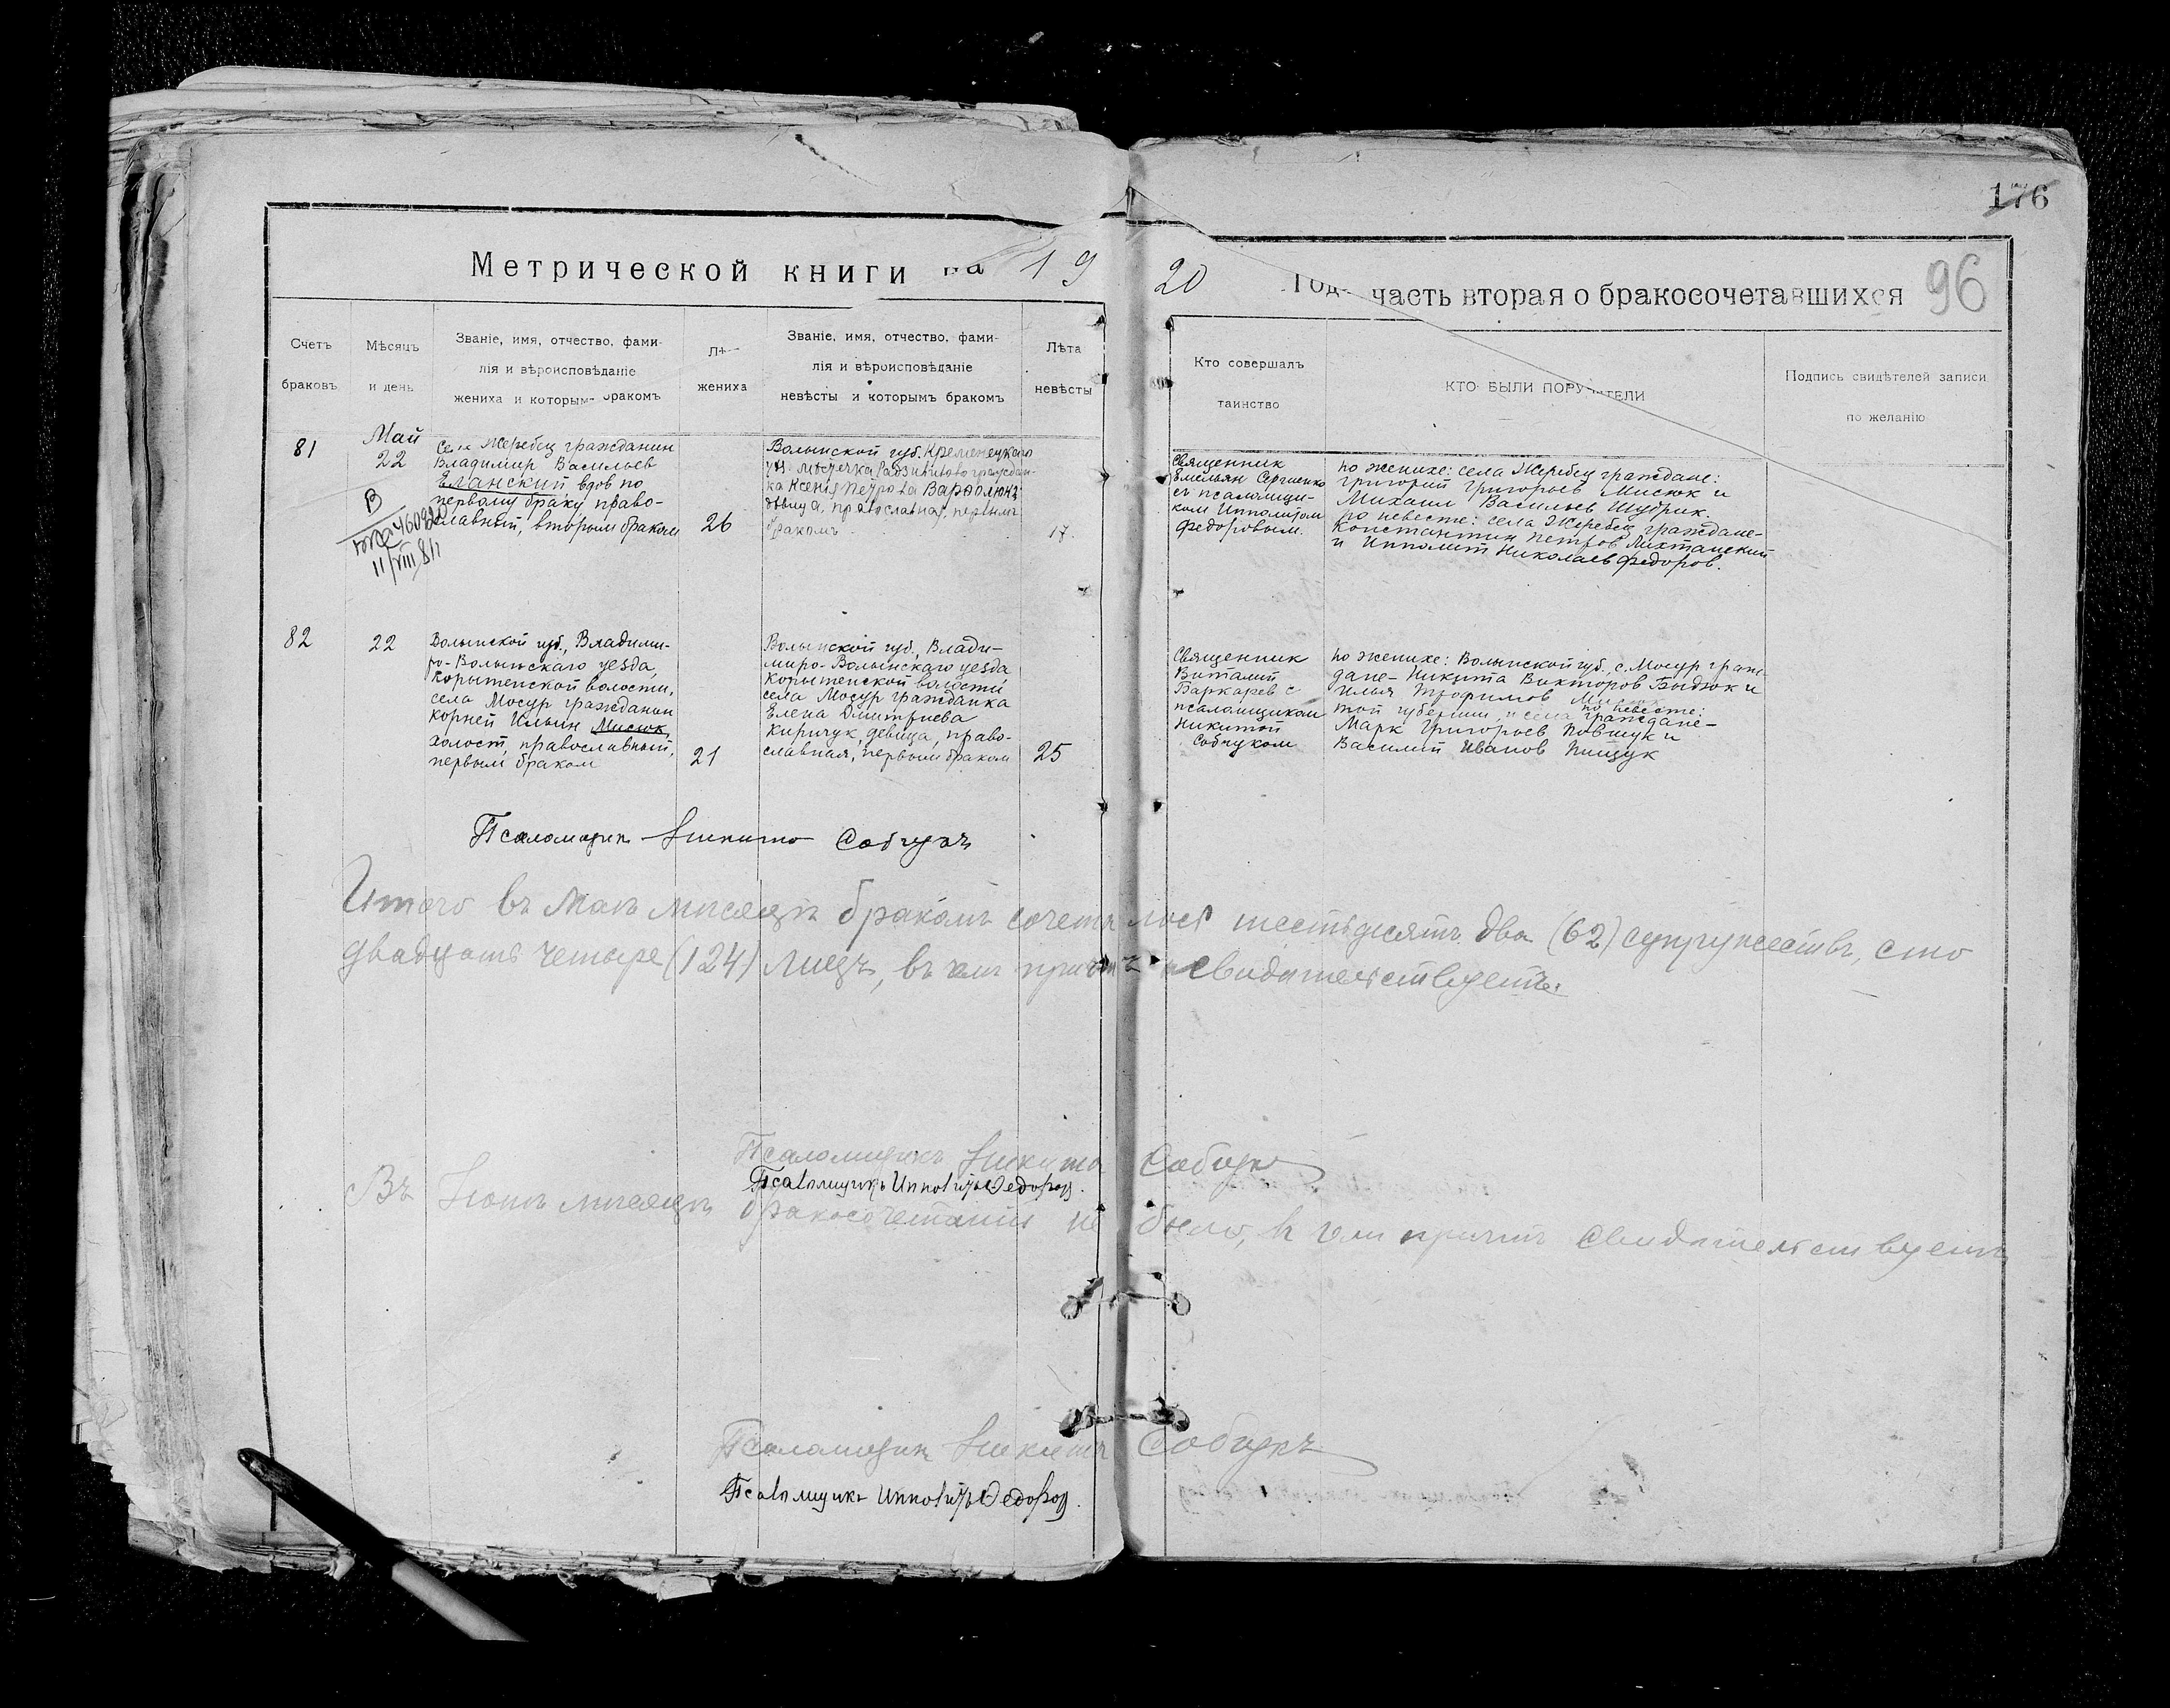 176
96
Метрической книги на 1920 год часть вторая о бракосочетавшихся
Счетъ браковъ
Мѣсяцъ и день
Званіе, имя, отчество, фами-
лія и вѣроисповѣданіе
жениха и которымъ бракомъ
Лѣта жениха
Званіе, имя, отчество, фами-
лія и вѣроисповѣданіе
невѣсты и которымъ бракомъ
Лѣта невѣсты
Кто совершалъ таинство
КТО БЫЛИ ПОРУЧИТЕЛИ
Подпись свидѣтелей записи
по желанію
81
Май
22
Села Жеребец гражданин
Владимир Васильев
Еланский вдов по
первому браку, право-
славный, вторым браком
26
Волынской губ. Кременецкаго
уѣз. мѣстечка Радзивилово граждан-
ка Ксенія Петрова
дѣвица, православная, первымъ
бракомъ
17.
Священник
Емельян Сергиенко
съ псаломщи-
ком Ипполитом
Федоровым.
по женихе: села Жеребец граждане:
Григорий Григорьев Мисюк и
Михаил Васильев Шубрик.
по невесте: села Жеребец граждане-
Константин Петров Лихтанский
и Ипполит Николаев Федоров.
В
11/VIII 81
82
22
Волынской губ., Владими-
ро-Волынскаго уезда,
Корытенской волости,
села Мосур гражданин
Корней Ильин Мисюк,
холост, православный,
первым браком
21
Волынской губ., Влади-
миро-Волынскаго уезда
Корытенской волости
села Мосур гражданка
Елена Дмитриева
Киричук, девица, право-
славная, первым браком
25
Священник
Виталий
Баркарев с
псаломщиком
Никитой
Собчуком
по женихе: Волынской губ., с. Мосур граж-
дане- Никита Викторов Быдзюк и
Илья Трофимов
по невесте:
той губернии, и села граждане-
Марк Григорьев Повшук и
Василий Иванов Пищук
Псаломщик Никита Собчукъ
Итого въ Маѣ мѣсяцѣ бракомъ сочеталось шестьдесятъ два (62) супружествъ, сто
двадцать четыре (124) лицъ, въ чем причтъ и свидѣтельствуетъ.
Псаломщикъ Никита Собчукъ
Псаломщикъ Ипполитъ Федоров.
Въ Іюнѣ мѣсяцѣ бракосочетаній не было, в чем причтъ свидѣтельствуетъ
Псаломщик Никита Собчукъ
Псаломщикъ Ипполитъ Федоров.